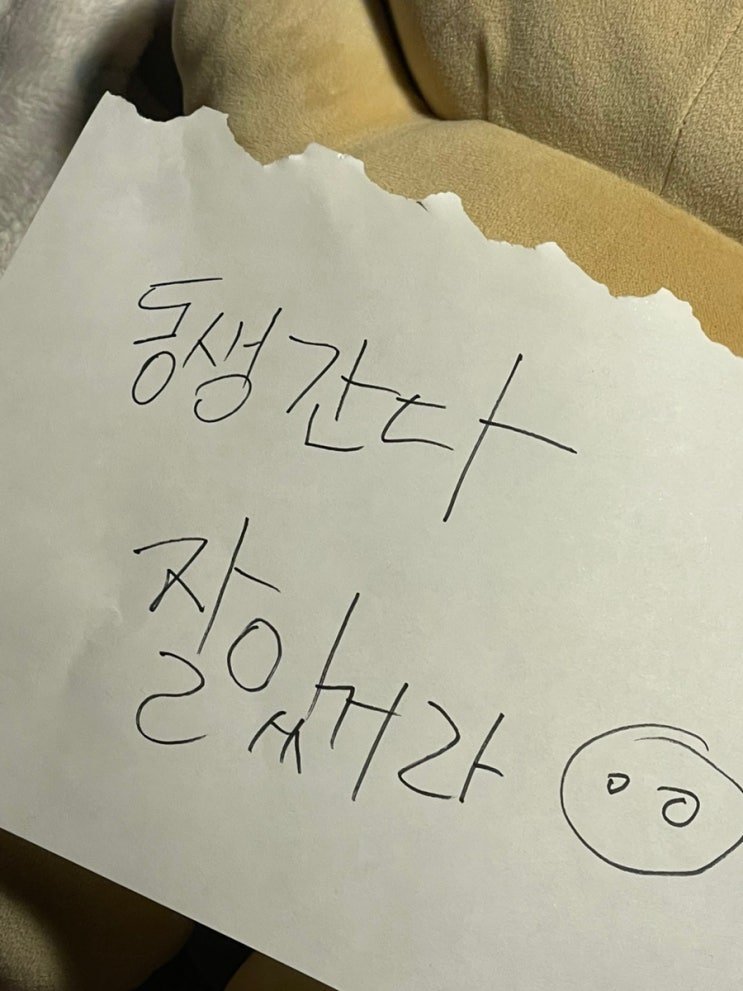 동생간다
잘있거라